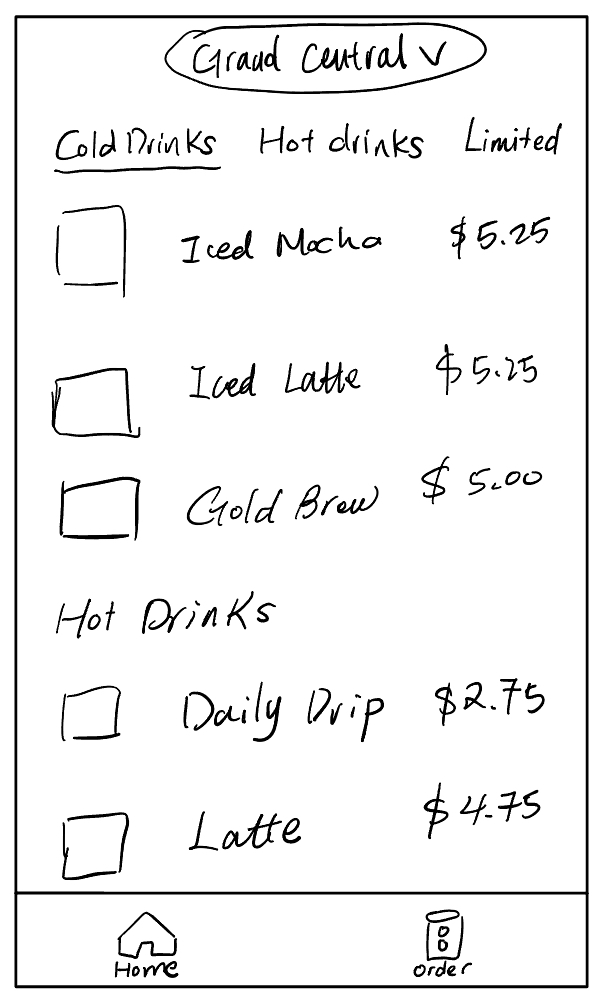 Grand Central v
Cold Drinks Hot drinks Limited
Iced Mocha $5.25
Iced Latte $5.25
Cold Brew $5.00
Hot Drinks
Daily Drip $2.75
Latte $4.75
Home order